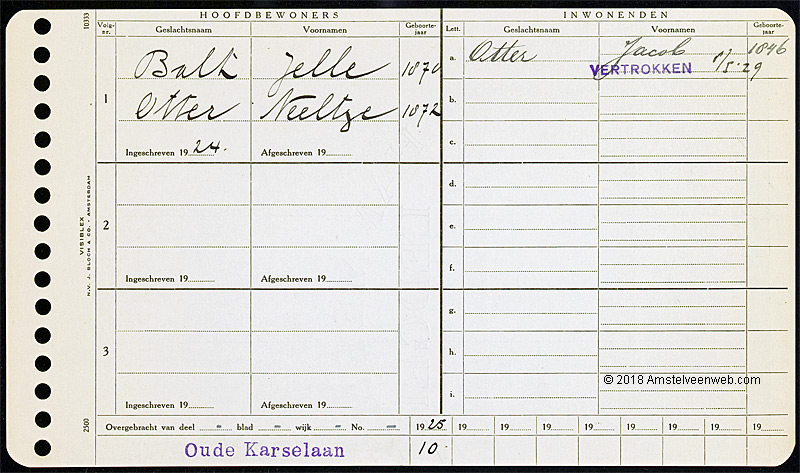 HOOFDBEWONERS INWONENDEN
Volg-nr. Geslachtsnaam Voornamen Geboorte-jaar Lett. Geslachtsnaam Voornamen Geboorte-jaar
1
Balk Jelle 1870
Otter Neeltje 1872
Ingeschreven 1924. Afgeschreven 19
a. Otter Jacob 1846
VERTROKKEN 29
b.
c.
2
Ingeschreven 19 Afgeschreven 19
d.
e.
f.
3
Ingeschreven 19 Afgeschreven 19
g.
h.
i.
© 2018 Amstelveenweb.com
Overgebracht van deel - blad - wijk - No. - 1925 19 19 19 19 19 19 19 19
Oude Karselaan 10
10333
VISIBLEX
N.V. J. BLOCH & CO. - AMSTERDAM
2500